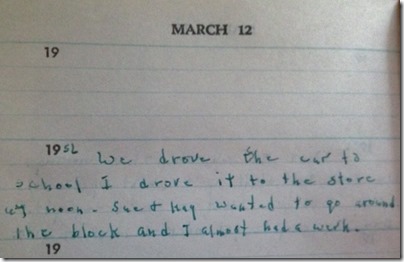 MARCH 12
19
19 We drove the car to
school I drove it to the store
noon. Sue & Kay wanted to go around
the block and I almost had a werk.
19